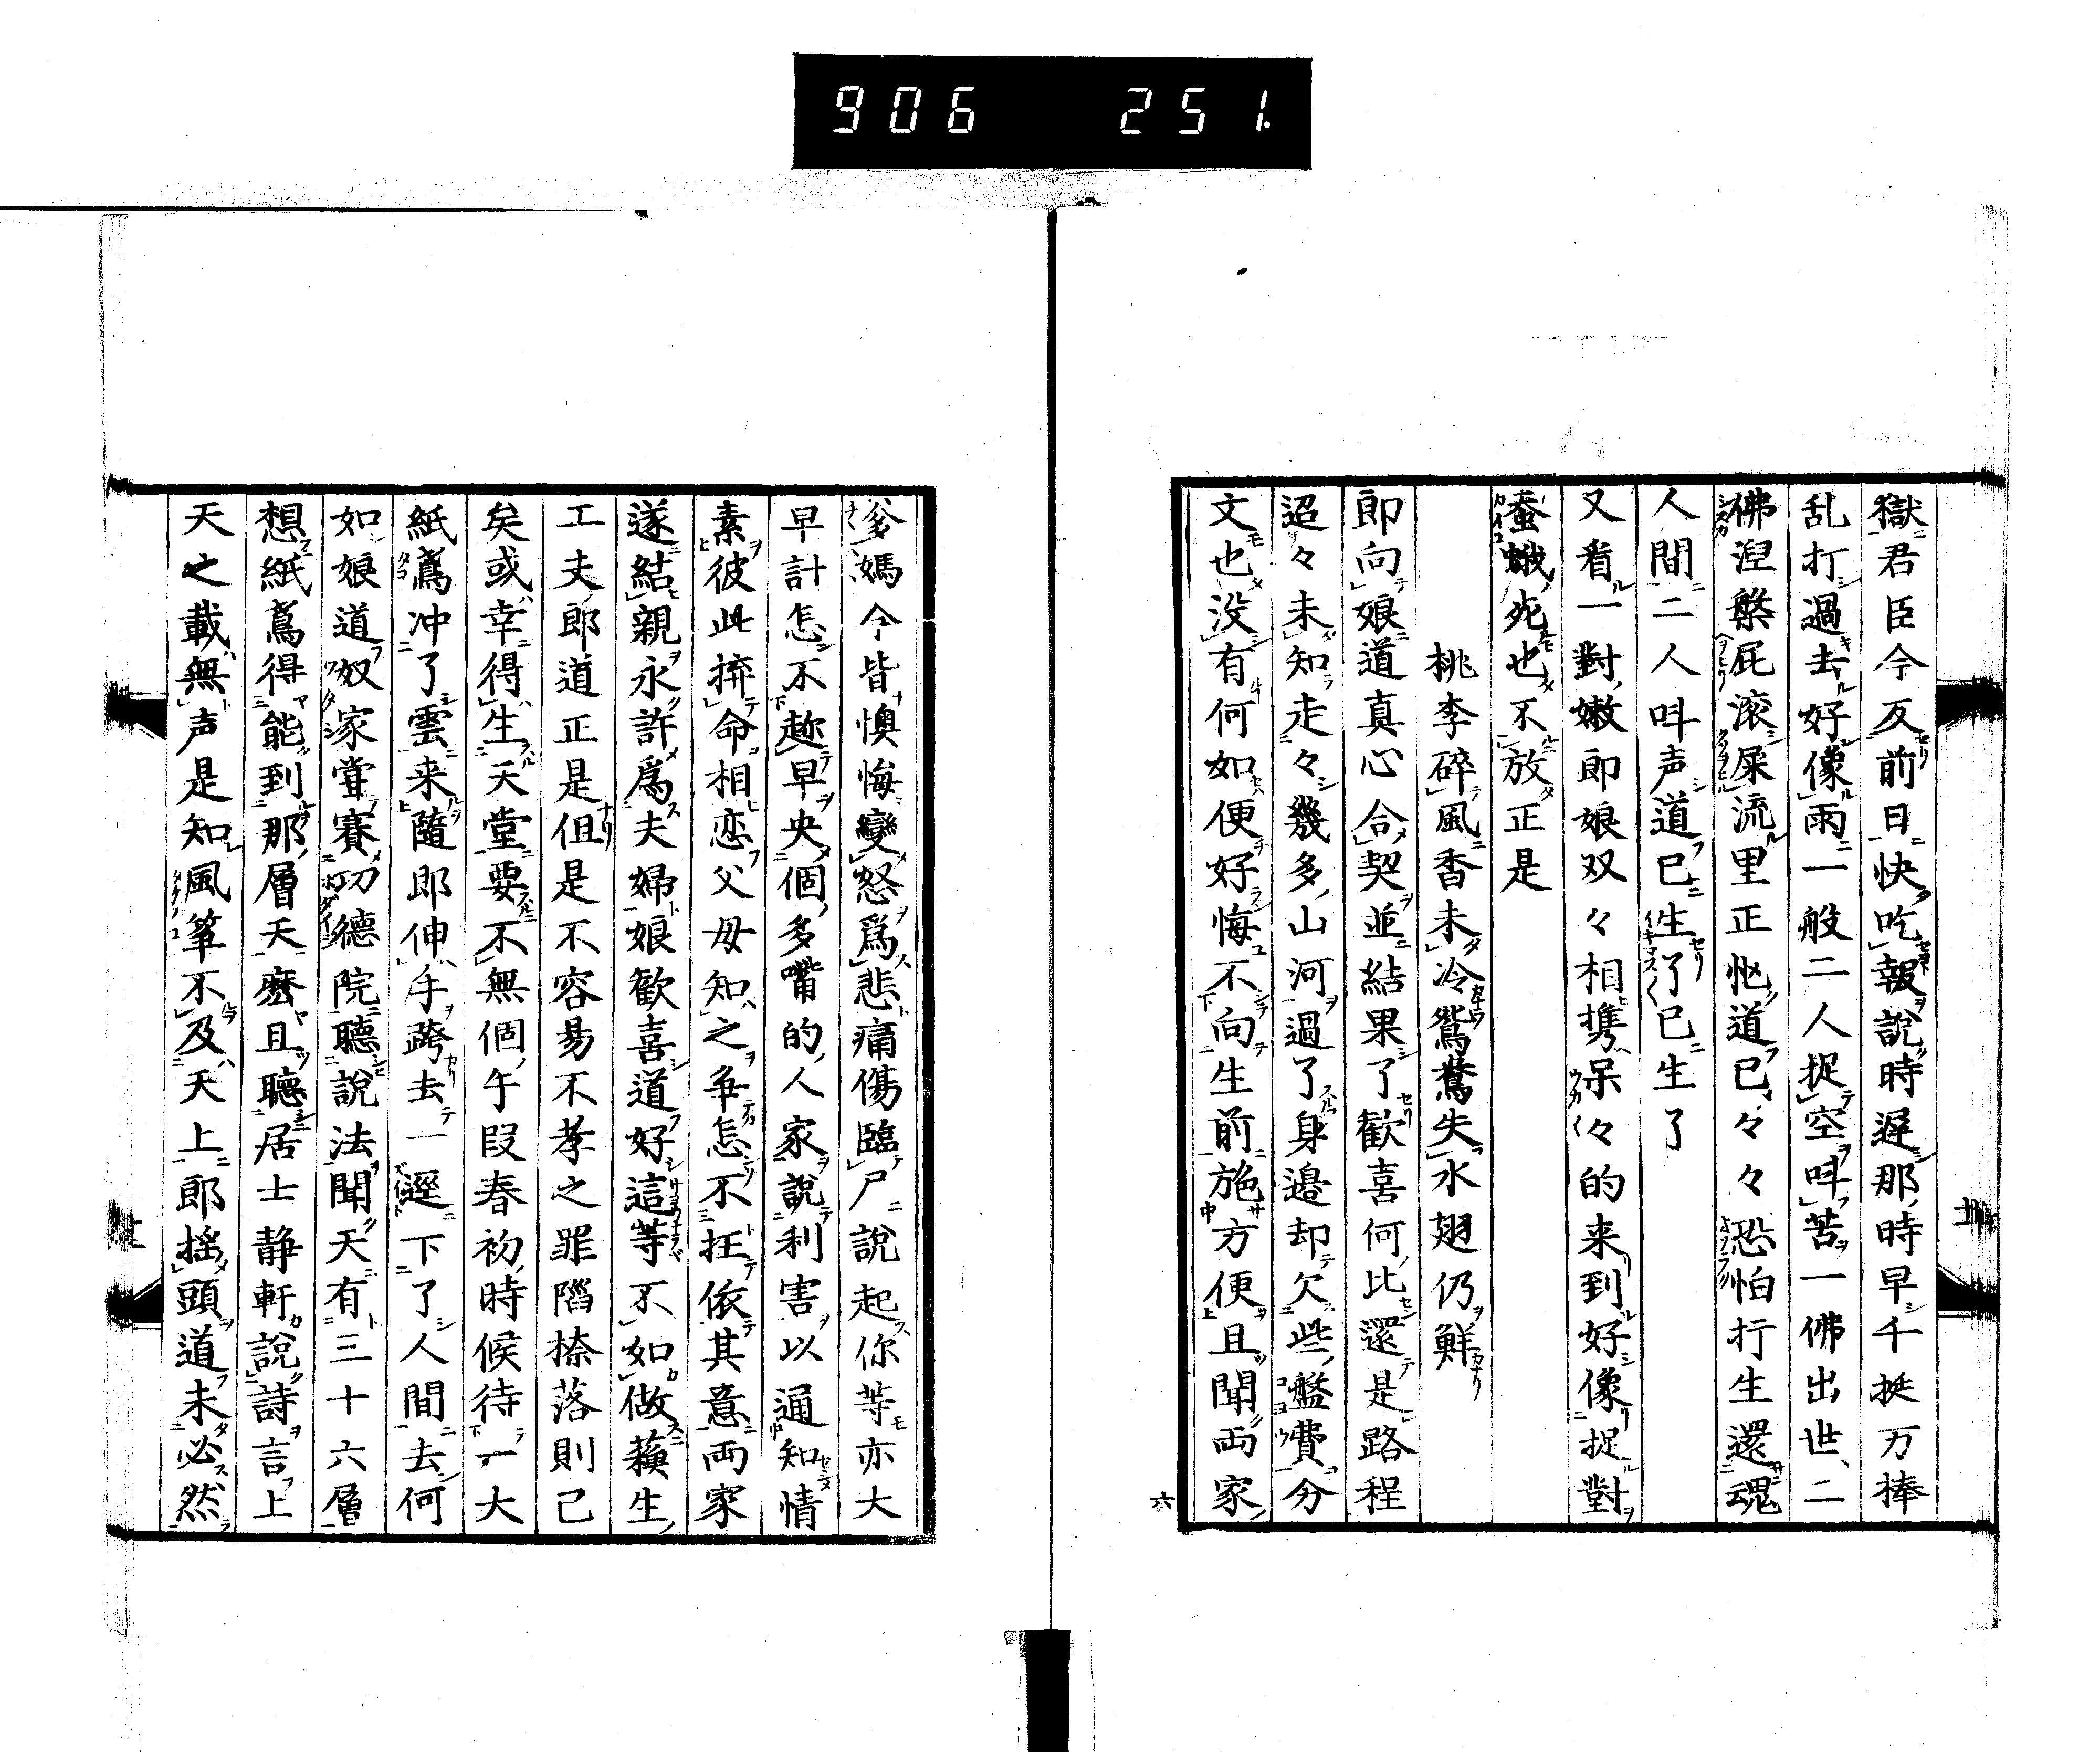 906 251.
獄君臣今反前日快吃報說時遅那時早千挺万棒
乱打過去好像雨一般二人捉空呌苦一佛出世、二
佛涅槃屁滚屎流里正怹道已々々恐怕行生還魂
人間二人呌声道已生了已生了
又看一對嫩郎娘双々相携呆々的来到好像捉對
蚕蛾死也不放正是
桃李碎風香未冷鴛鴦失水翅仍鮮
郎向娘道真心合契並結果了歓喜何比還是路程
迢々未知走々幾多山河過了身邉却欠些盤費分
文也没有何如便好悔不向生前施方便且聞両家
六
爹媽今皆懊悔變怒爲悲痛傷臨尸說起你等亦大
早計怎不趂早央個多嘴的人家說利害以通知情
素彼此捹命相恋父母知之争怎不抂依其意両家
遂結親永許爲夫婦娘歓喜道好這等不如做蘓生
工夫郎道正是但是不容易不孝之罪陷捺落則已
矣或幸得生天堂要不無個午段春初時候待一大
紙鳶冲了雲来隨郎伸手跨去一逕下了人間去何
如娘道奴家甞賽功德院聽說法聞天有三十六層
想紙鳶得能到那層天麽且聽居士静軒說詩言上
天之載無声是知風筝不及天上郎揺頭道未必然